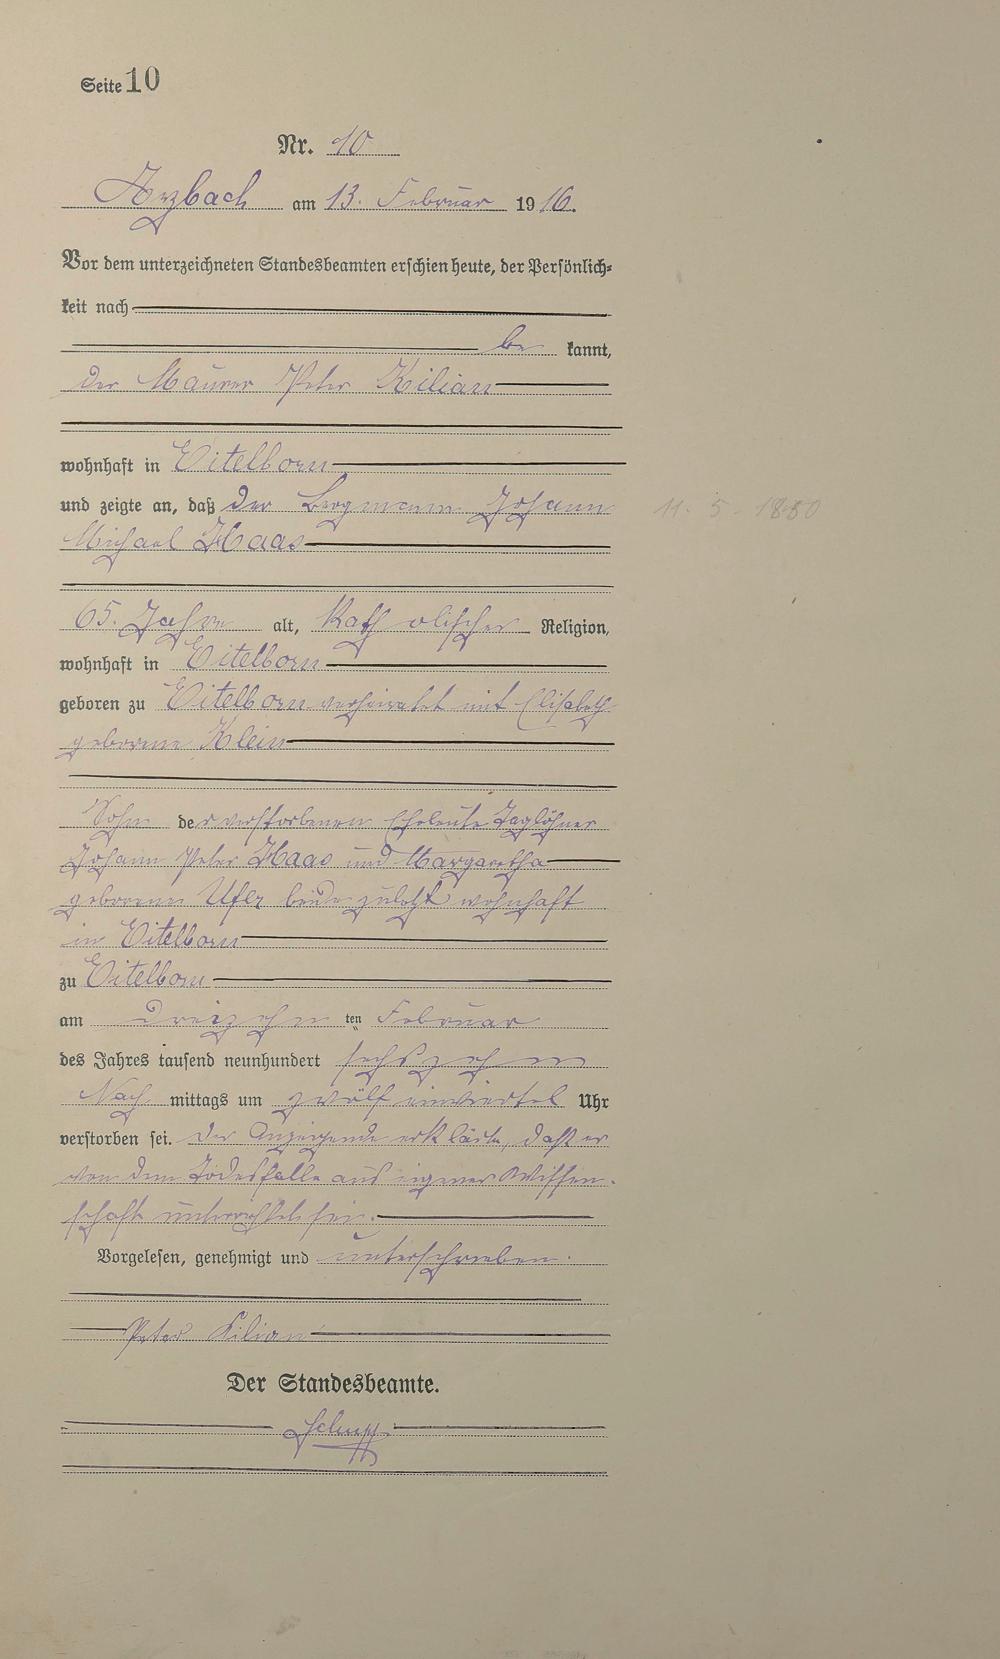 Seite 10
Nr. 10
Arzbach am 13. Februar 1916.
Vor dem unterzeichneten Standesbeamten erschien heute, der Persönlich-
keit nach
be kannt,
der Maurer Peter Kilian
wohnhaft in Eitelborn
und zeigte an, daß der Bergmann Johann
11. 5. 1850
Michael Haas
65. Jahre alt, Katholischer Religion,
wohnhaft in Eitelborn
geboren zu Eitelborn verheiratet mit Elisabeth
geborene Klein
Sohn der verstorbenen Eheleute Taglöhner
Johann Peter Haas und Margaretha
geborenen beide zuletzt wohnhaft
in Eitelborn
zu Eitelborn
am dreizehn ten Februar
des Jahres tausend neunhundert sechszehn
Nach mittags um zwölf einviertel Uhr
verstorben sei. Der Anzeigende erklärte, daß er
von dem Todesfalle aus eigener Wissen-
schaft unterrichtet sei.
Vorgelesen, genehmigt und unterschrieben.
Peter Kilian
Der Standesbeamte.